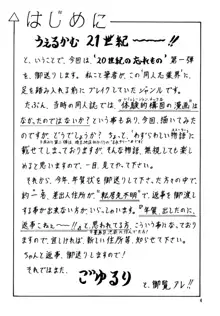 はじめに
うぇるかむ 21世紀──!!
と、いうことで、今回は、『20世紀の忘れもの』第一弾
を、御送りします!! 私こと筆者が、この「同人な業界」に、
足を踏み入れる前に、ブレイクしていたジャンルです。
たぶん、当時の同人誌では、"体験的構図の漫画"は
なかったのではないか?という事もあり、今回、描いてみたの
ですが、どうでしょうか? ちょっと、"わずらわしい物語"も
載せてしまっておりますが、そんな物語、無視しても楽し
めると思いますので、一目、見てやって下さい。
それから、今年、年賀状を御送りして下さった、方々の中で
約一名、差出人住所が、"転居先不明"で、返事を御渡し
する事が出来ない方が、いらっしゃいます。『年賀、出したのに、
返事こねェ──!!』と、思われてる方、こういう事情になって
おりますので、宜しければ、新しい住所等、知らせて下さい。
ちゃんと返事、御送りしますので!!
それではまた、
ごゆるり
と、御覧アレ!!
4